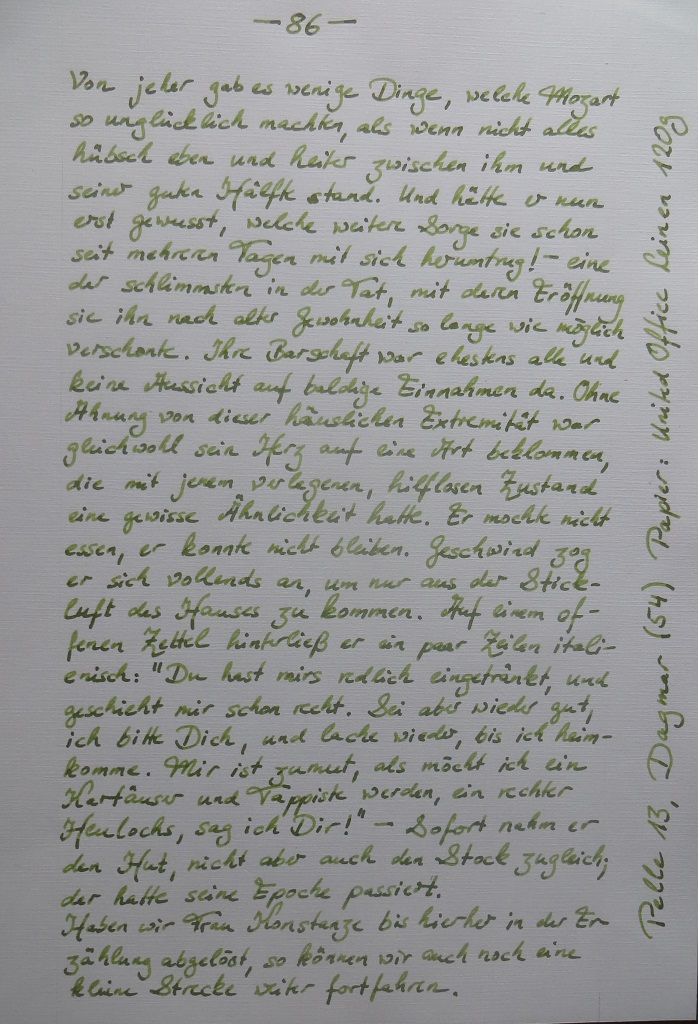 — 86 —
Von jeher gab es wenige Dinge, welche Mozart
so unglücklich machten, als wenn nicht alles
hübsch eben und heiter zwischen ihm und
seiner guten Hälfte stand. Und hätte er nun
erst gewusst, welche weitere Sorge sie schon
seit mehreren Tagen mit sich herumtrug! – eine
der schlimmsten in der Tat, mit deren Eröffnung
sie ihn nach alter Gewohnheit so lange wie möglich
verschonte. Ihre Barschaft war ehestens alle und
keine Aussicht auf baldige Einnahmen da. Ohne
Ahnung von dieser häuslichen Extremität war
gleichwohl sein Herz auf eine Art beklommen,
die mit jenem verlegenen, hilflosen Zustand
eine gewisse Ähnlichkeit hatte. Er mochte nicht
essen, er konnte nicht bleiben. Geschwind zog
er sich vollends an, um nur aus der Stick-
luft des Hauses zu kommen. Auf einem of-
fenen Zettel hinterließ er ein paar Zeilen itali-
enisch: "Du hast mirs redlich eingetränkt, und
geschieht mir schon recht. Sei aber wieder gut,
ich bitte Dich, und lache wieder, bis ich heim-
komme. Mir ist zumut, als möcht ich ein
Kartäuser und Tappiste werden, ein rechter
Heulochs, sag ich Dir!" – Sofort nahm er
den Hut, nicht aber auch den Stock zugleich;
der hatte seine Epoche passiert.
Haben wir Frau Konstanze bis hierher in der Er-
zählung abgelöst, so können wir auch noch eine
kleine Strecke weiter fortfahren.
Pelle 13, Dagmar (54) Papier: United Office Leinen 120g